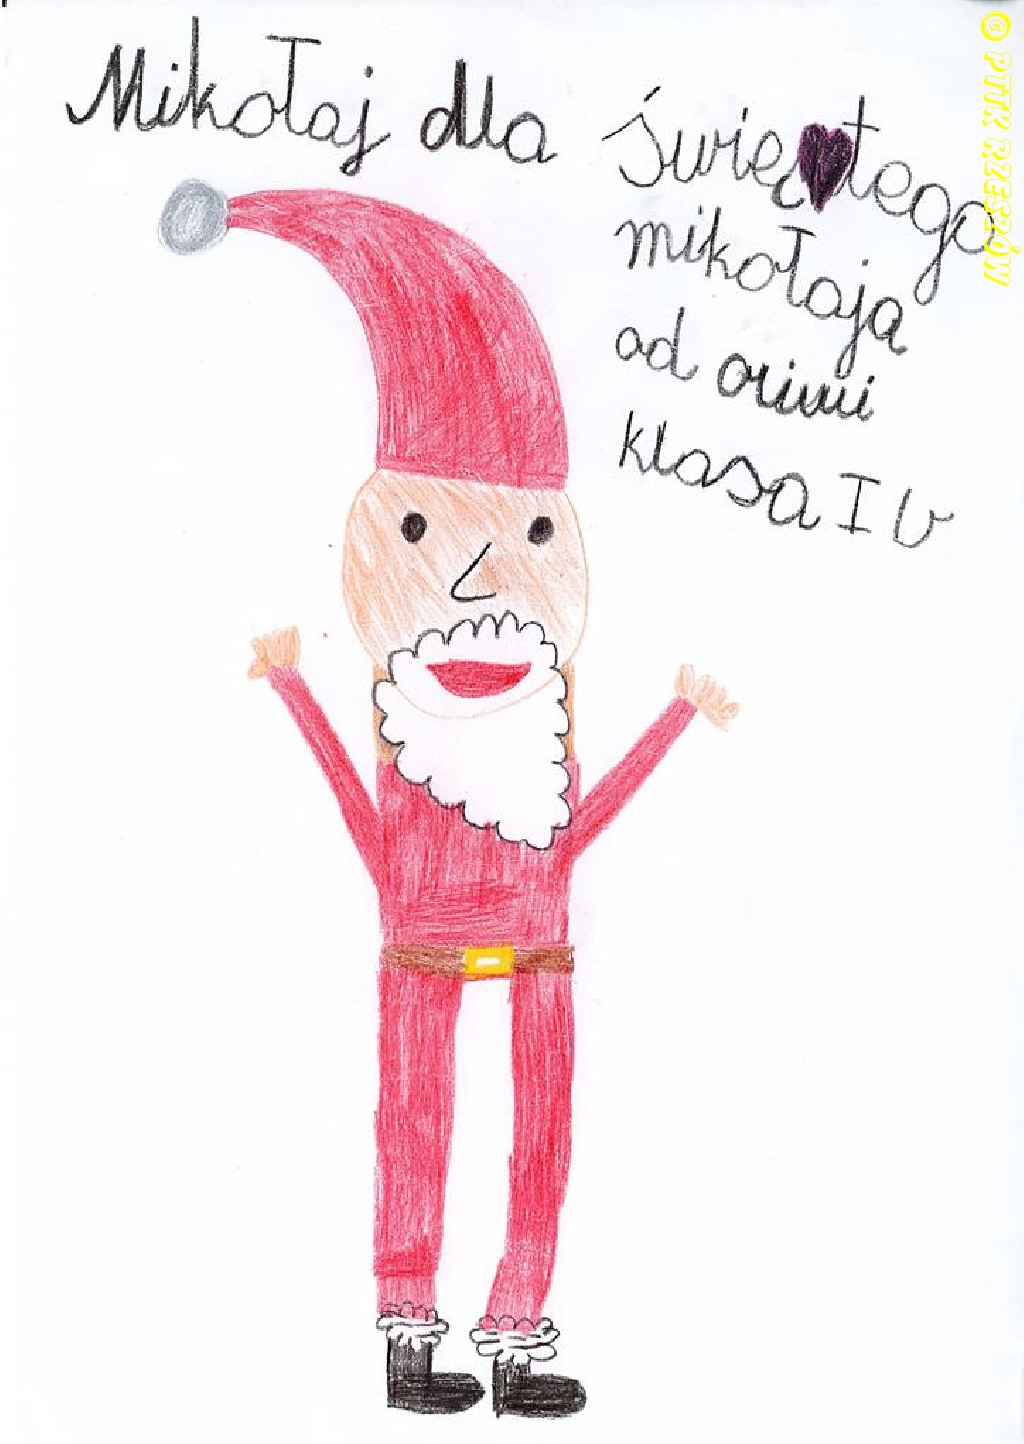 Mikołaj dla świętego
mikołaja
od oriwii
klasa I b
© PTTK RZESZÓW